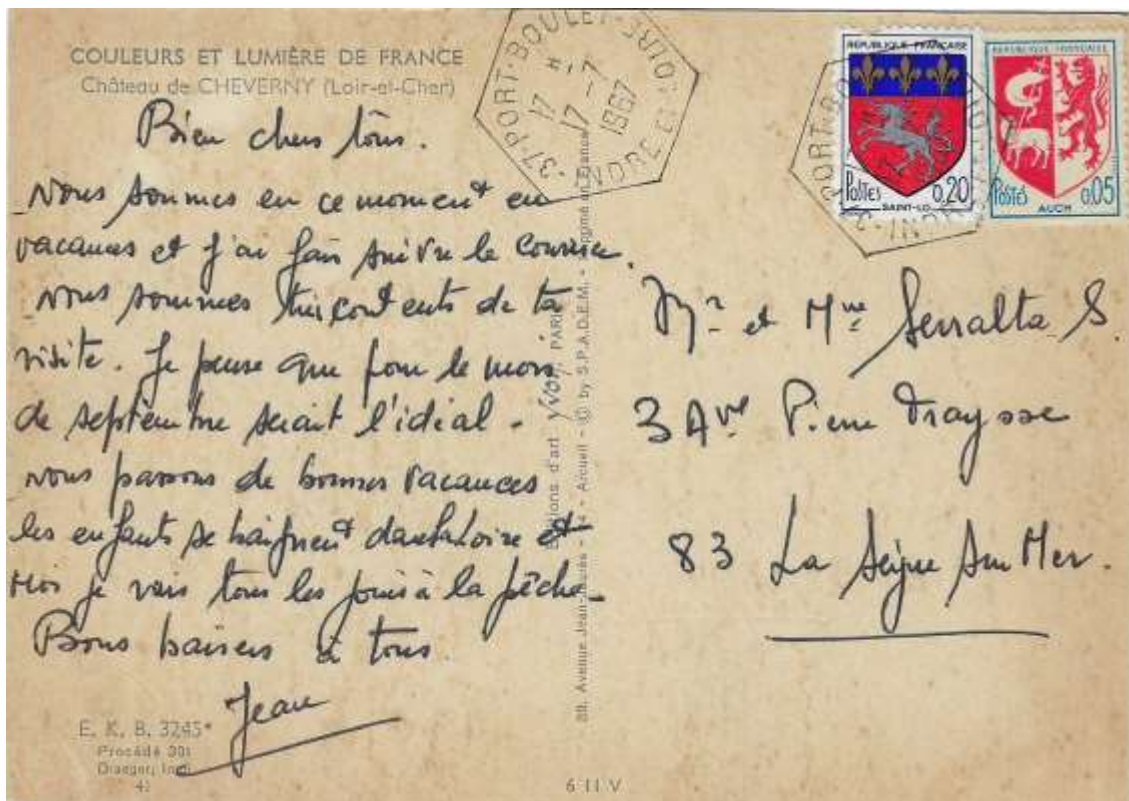 COULEURS ET LUMIÈRE DE FRANCE
Château de CHEVERNY (Loir-et-Cher)
Bien chers tous.
Nous sommes en ce moment en
vacances et j'ai fais suivre le courrier.
Nous sommes très contents de ta
visite. Je pense que pour le mois
de septembre serait l'idéal.
nous passons de bonnes vacances
les enfants se baignent dans la Loire et
Moi je vais tous les jours à la pêche.
Bons baisers à tous.
Jean
E. K. B. 3245*
Procédé 301
Draeger, Imp.
6 II V
Editions d'art YVON PARIS
Avenue Jean-Jaurès - Arcueil - © by S.P.A.D.E.M. - Imprimé en France
37-PORT-BOULET-INDRE ET LOIRE
17 H
17-7
1967
REPUBLIQUE FRANÇAISE
POSTES 0,20
SAINT-LO
REPUBLIQUE FRANÇAISE
POSTES 0,05
AUCH
Mr et Mme Serralta S
3 Ave Pierre Fraysse
83 La Seyne Sur Mer.